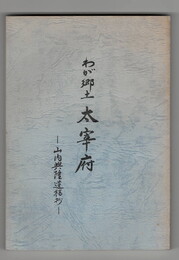 わが郷土太宰府
―山内興隆遺稿抄―